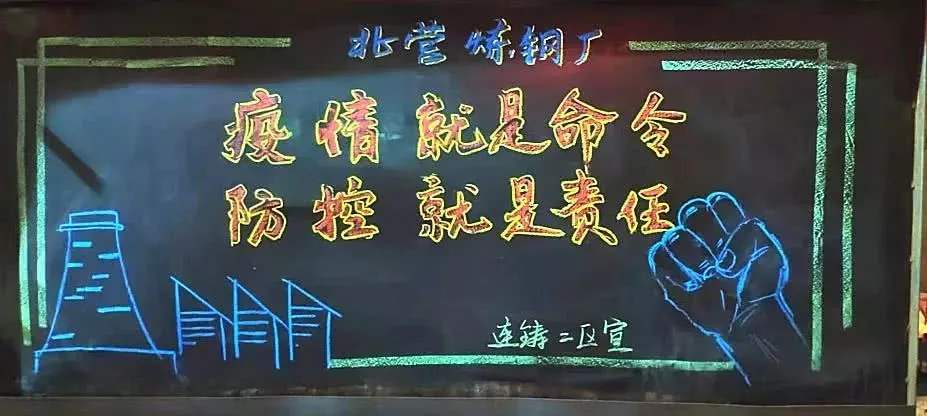 北营炼钢厂
疫情就是命令
防控就是责任
连铸二区宣